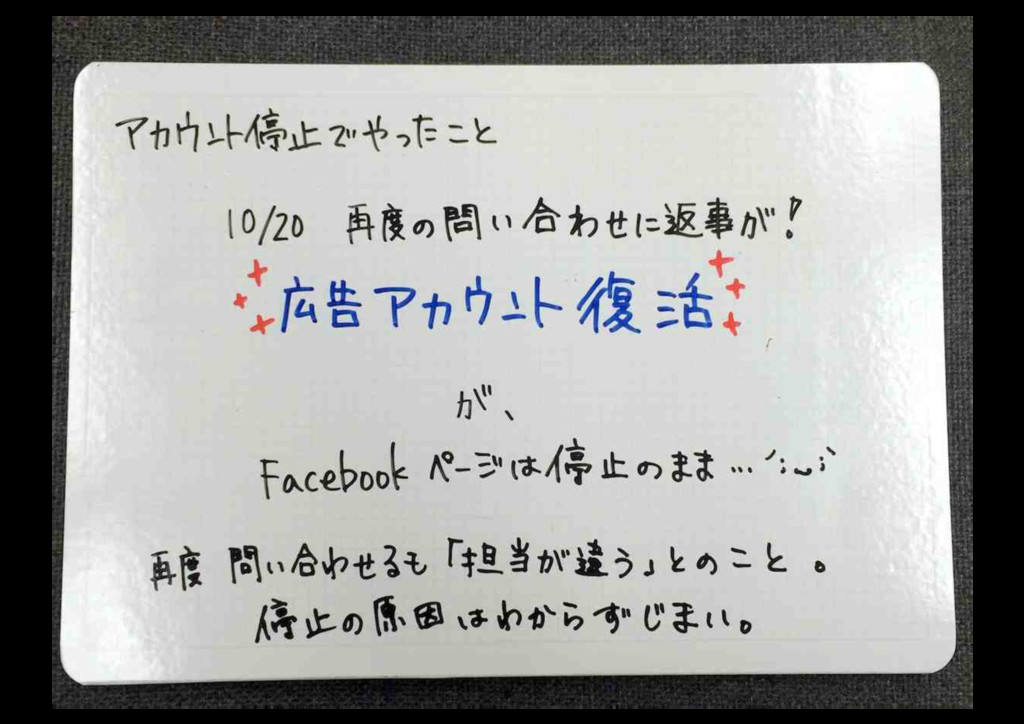 アカウント停止でやったこと
10/20 再度の問い合わせに返事が!
広告アカウント復活
が、
Facebookページは停止のまま…´;ω;`
再度 問い合わせるも「担当が違う」とのこと。
停止の原因はわからずじまい。